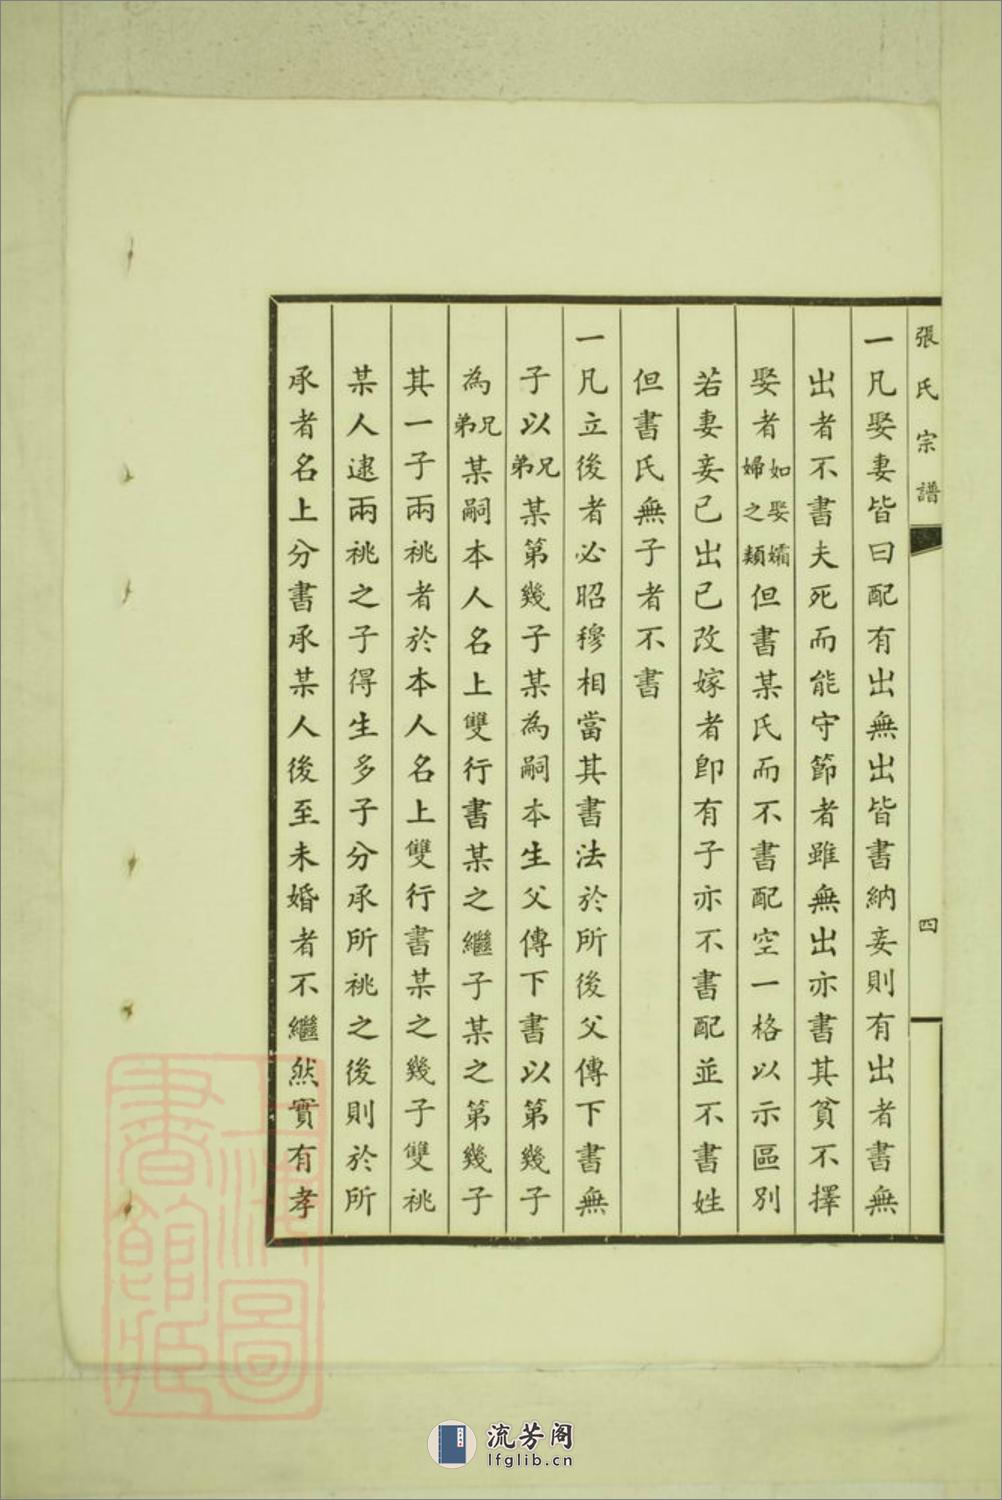 張氏宗譜
四
一凡娶妻皆曰配有出無出皆書納妾則有出者書無
出者不書夫死而能守節者雖無出亦書其貧不擇
娶者如娶孀婦之類但書某氏而不書配空一格以示區別
若妻妾已出已改嫁者卽有子亦不書配並不書姓
但書氏無子者不書
一凡立後者必昭穆相當其書法於所後父傳下書無
子以兄弟某第幾子某為嗣本生父傳下書以第幾子
為兄弟某嗣本人名上雙行書某之繼子某之第幾子
其一子兩祧者於本人名上雙行書某之幾子雙祧
某人逮兩祧之子得生多子分承所祧之後則於所
承者名上分書承某人後至未婚者不繼然實有孝
上海圖書館藏
流芳阁
lfglib.cn